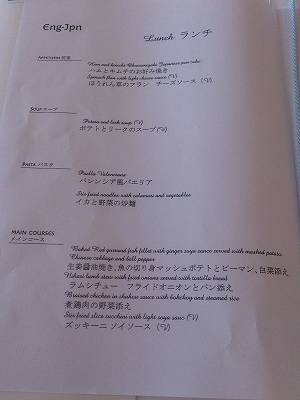 Eng-Jpn
Lunch ランチ
Appetizers 前菜
Ham and kimchi Okonomiyaki Japanese pan cake
ハムとキムチのお好み焼き
Spinach flan with light cheese sauce (V)
ほうれん草のフラン チーズソース (V)
Soup スープ
Potato and leek soup (V)
ポテトとリークのスープ(V)
Pasta パスタ
Paella Valenciana
バレンシア風パエリア
Stir fried noodles with calamari and vegetables
イカと野菜の炒麺
MAIN COURSES
メインコース
Baked fish fillet with ginger soya sauce served with mashed potato
Chinese cabbage and bell pepper
生姜醤油焼き、魚の切り身マッシュポテトとピーマン、白菜添え
lamb stew with fried onions served with bread
ラムシチュー フライドオニオンとパン添え
Braised chicken in sauce with bokchoy and steamed rice
煮鶏肉の野菜添え
Stir fried slice zucchini with light soya sauce (V)
ズッキーニ ソイソース (V)